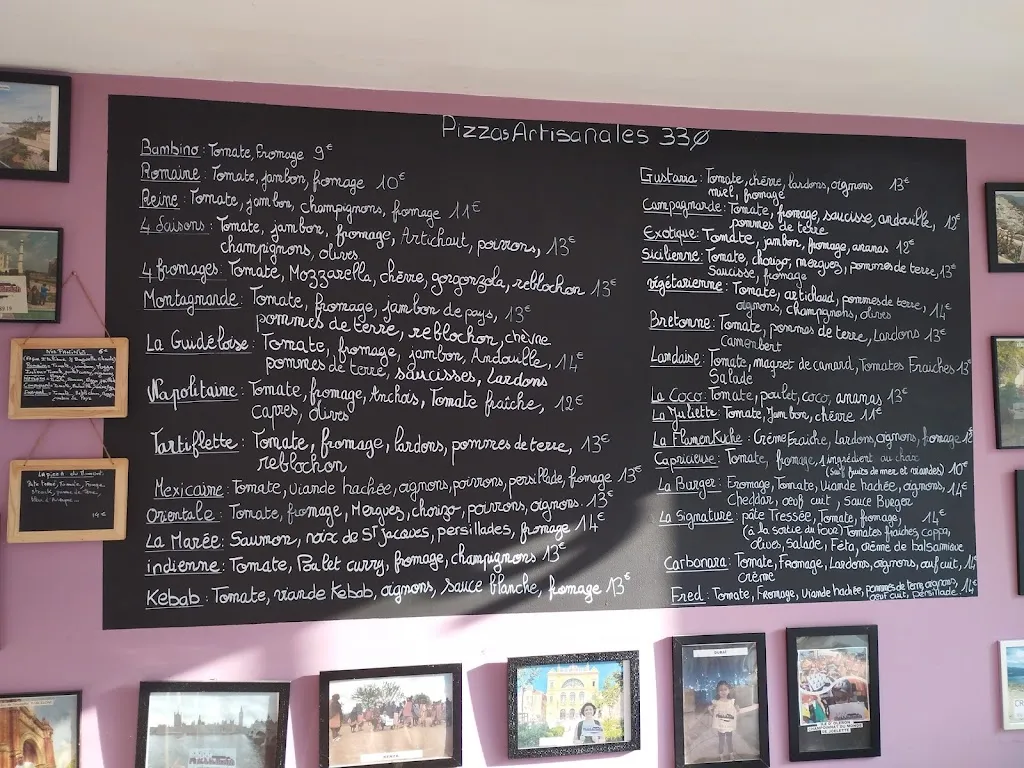 Pizzas Artisanales 33Ø
Bambino : Tomate, fromage 9€
Romaine : Tomate, jambon, fromage 10€
Reine : Tomate, jambon, champignons, fromage 11€
4 Saisons : Tomate, jambon, fromage, Artichaut, poivrons, 13€
champignons, olives
4 fromages : Tomate, Mozzarella, chèvre, gorgonzola, reblochon 13€
Montagnarde : Tomate, fromage, jambon de pays, 13€
pommes de terre, reblochon, chèvre
La Guideloise : Tomate, fromage, jambon, Andouille, 14€
pommes de terre, saucisses, Lardons
Napolitaine : Tomate, fromage, Anchois, Tomate fraîche, 12€
capres, olives
Tartiflette : Tomate, fromage, lardons, pommes de terre, 13€
reblochon
Mexicaine : Tomate, viande hachée, oignons, poivrons, persillade, fromage 13€
Orientale : Tomate, fromage, Merguez, chorizo, poivrons, oignons. 13€
La Marée : Saumon, noix de St Jacques, persillades, fromage 14€
indienne : Tomate, Poulet curry, fromage, champignons 13€
Kebab : Tomate, viande Kebab, oignons, sauce blanche, fromage 13€
Gustavia : Tomate, chèvre, lardons, oignons 13€
miel, fromage
Campagnarde : Tomate, fromage, saucisse, andouille, 12€
pommes de terre
Exotique : Tomate, jambon, fromage, ananas 12€
Sicilienne : Tomate, chorizo, merguez, pommes de terre, 13€
Saucisse, fromage
végétarienne : Tomate, artichaud, pommes de terre, 14€
oignons, champignons, olives
Bretonne : Tomate, pommes de terre, Lardons 13€
Camembert
Landaise : Tomate, magret de canard, Tomates Fraiches 13€
Salade
La Coco : Tomate, poulet, coco, ananas 13€
La Juliette : Tomate, Jambon, chèvre 11€
La FlamenKuche : Crème Fraiche, Lardons, oignons, fromage 12€
Capricieuse : Tomate, fromage, 1 ingrédient au choix
(sauf fruits de mer et viandes) 10€
La Burger : Fromage, Tomate, Viande hachée, oignons, 14€
Cheddar, œuf cuit, Sauce Burger
La Signature : pâte Tressée, Tomate, fromage, 14€
(à la sortie du four) Tomates fraiches, coppa,
Olives, Salade, Féta, crème de balsamique
Carbonara : Tomate, Fromage, Lardons, oignons, œuf cuit, 14€
Crème
Fred : Tomate, Fromage, Viande hachée, pommes de terre, oignons, 14€
œuf cuit, persillade
Nos Paninis 6€
La pizza du Moment
14€
DUBAÏ
CHAMPIONNAT DU MONDE
DE JOËLETTE